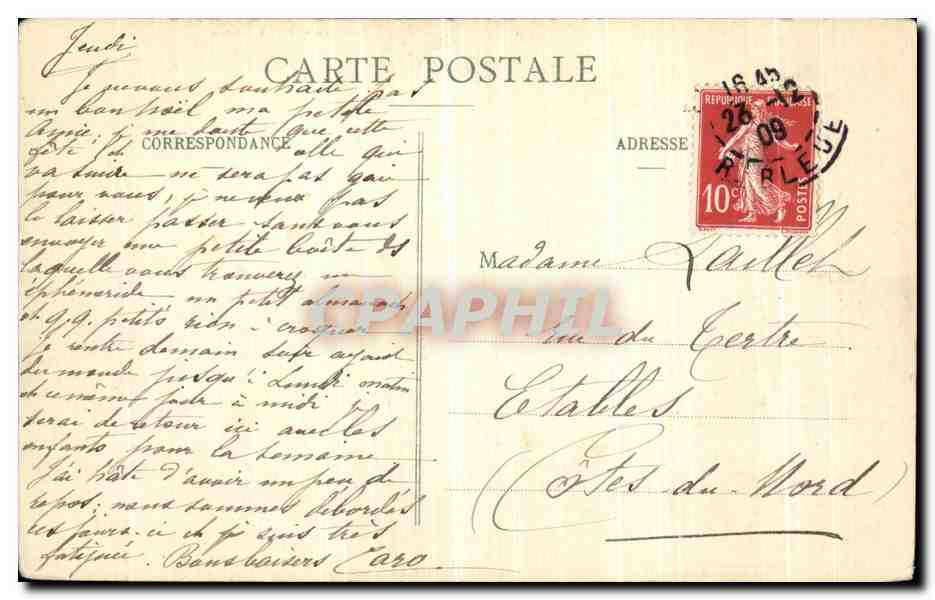 Jeudi
CARTE POSTALE
Je ne vous souhaite pas
un bon Noël ma petite
Amie; je me doute que cette
fête et celle qui
CORRESPONDANCE
va suivre ne sera pas gaie
pour vous, je ne veux pas
le laisser passer sans vous
envoyer une petite boîte ds
laquelle vous trouverez un
éphéméride un petit almanach
et q.q. petits rien à croquer
je rentre demain soir ayant
du monde jusqu'à Lundi matin
et ce même jour à midi je
serai de retour ici avec les
enfants pour la semaine
J'ai hâte d'avoir un peu de
repos; nous sommes débordés
ces jours-ci et je suis très
fatiguée. Bons baisers Caro
ADRESSE
REPUBLIQUE FRANÇAISE
10 c
POSTES
16 45
23 -12
09
Madame Laillet
rue du Tertre
Etables
(Côtes-du-Nord)
CPAPHIL